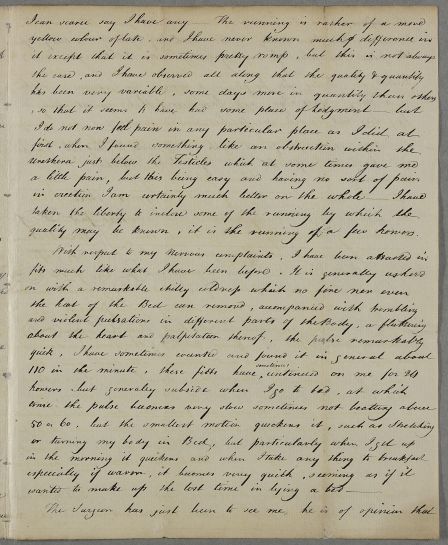 I can scarce say I have any The running is rather of a more
yellow colour of late, and I have never known much difference in
it except that it is sometimes pretty romp, but this is not always
the case, and I have observed all along that the quality & quantity
has been very variable, some days more in quantity than others
, so that it seems to have had some place of lodgment — but
I do not now feel pain in any particular place as I did at
first, when I found something like an obstruction within the
Urethera just below the Testicles which at some times gave me
a little pain, but this being easy and having no sort of pain
in erection I am certainly much better on the whole — I have
taken the liberty to inclose some of the running by which the
quality may be known, it is the running of a few hours.
With respect to my Nervous complaints, I have been attacked in
fits much like what I have been before. It is generally ushered
in with a remarkable chilly coldness which no fire nor even
the heat of the Bed can remove, accompanied with trembling
and violent pulsations in different parts of the Body, a fluttering
about the heart and palpitation thereof, the pulse remarkably
quick, I have sometimes counted and found it in general about
110 in the minute, these fitts have sometimes continued on me for 24
howers but generaley subside when I go to bed, at which
time the pulse becomes very slow sometimes not beating above
50 or 60, but the smallest motion quickens it, such as stretching
or turning my body in Bed, but particularly when I get up
in the morning it quickens and when I take any thing to breakfast
especially if warm, it becomes very quick, seeming as if it
wanted to make up the lost time in lying a bed —
The Surgeon has just been to see me, he is of opinion that